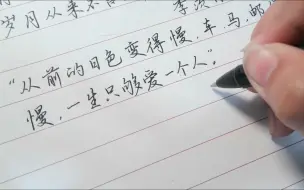 岁月从来不
"从前的日色变得慢，车，马，邮
慢，一生只够爱一个人"。